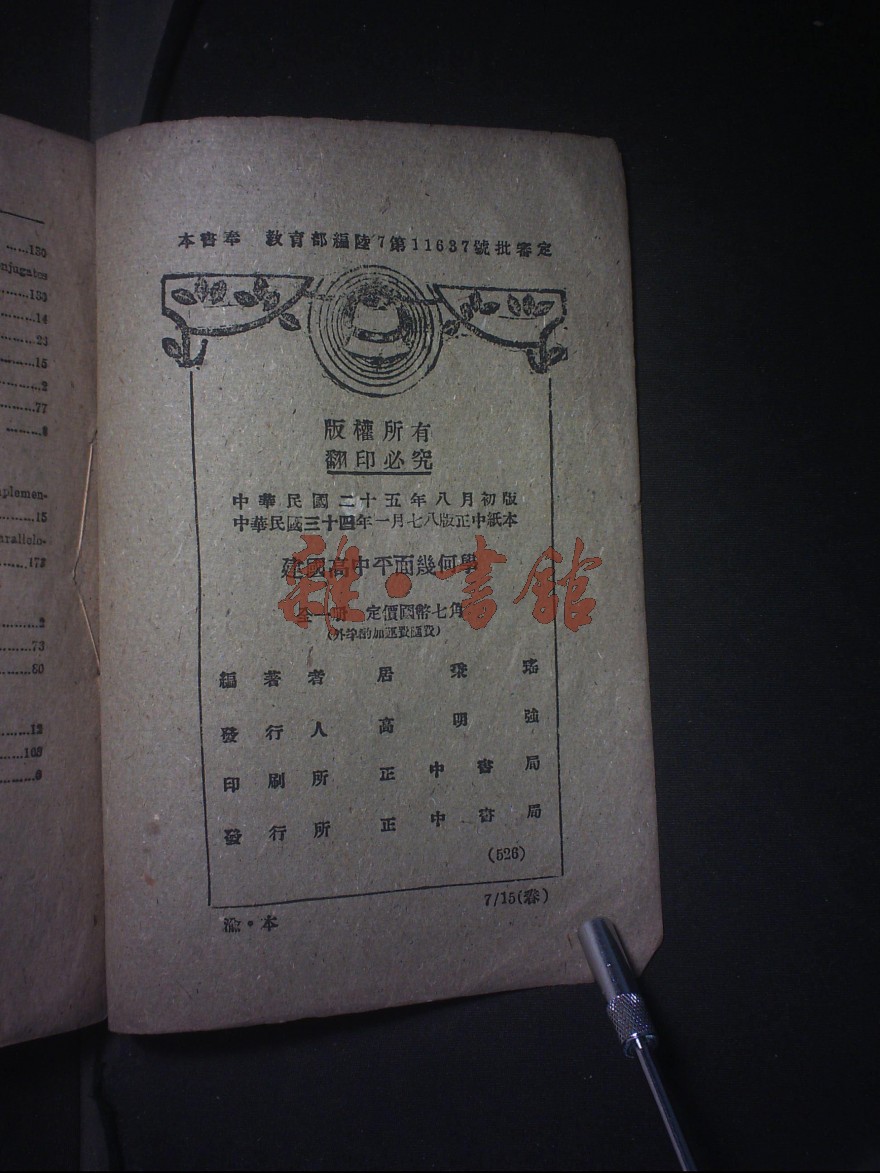 ......130
njugates
......135
......14
......23
......15
......2
......77
......8
plemen-
......15
arallelo-
......173
......2
......73
......60
......12
......103
......6
本書奉 教育部編陸7第11637號批審定
版權所有
翻印必究
中華民國二十五年八月初版
中華民國三十四年一月七八版正中紙本
建國高中平面幾何學
全一册 定價國幣七角
(外埠酌加運費匯費)
編著者 居秉瑤
發行人 高明強
印刷所 正中書局
發行所 正中書局
(526)
7/15(春)
渝·本
雜·書館